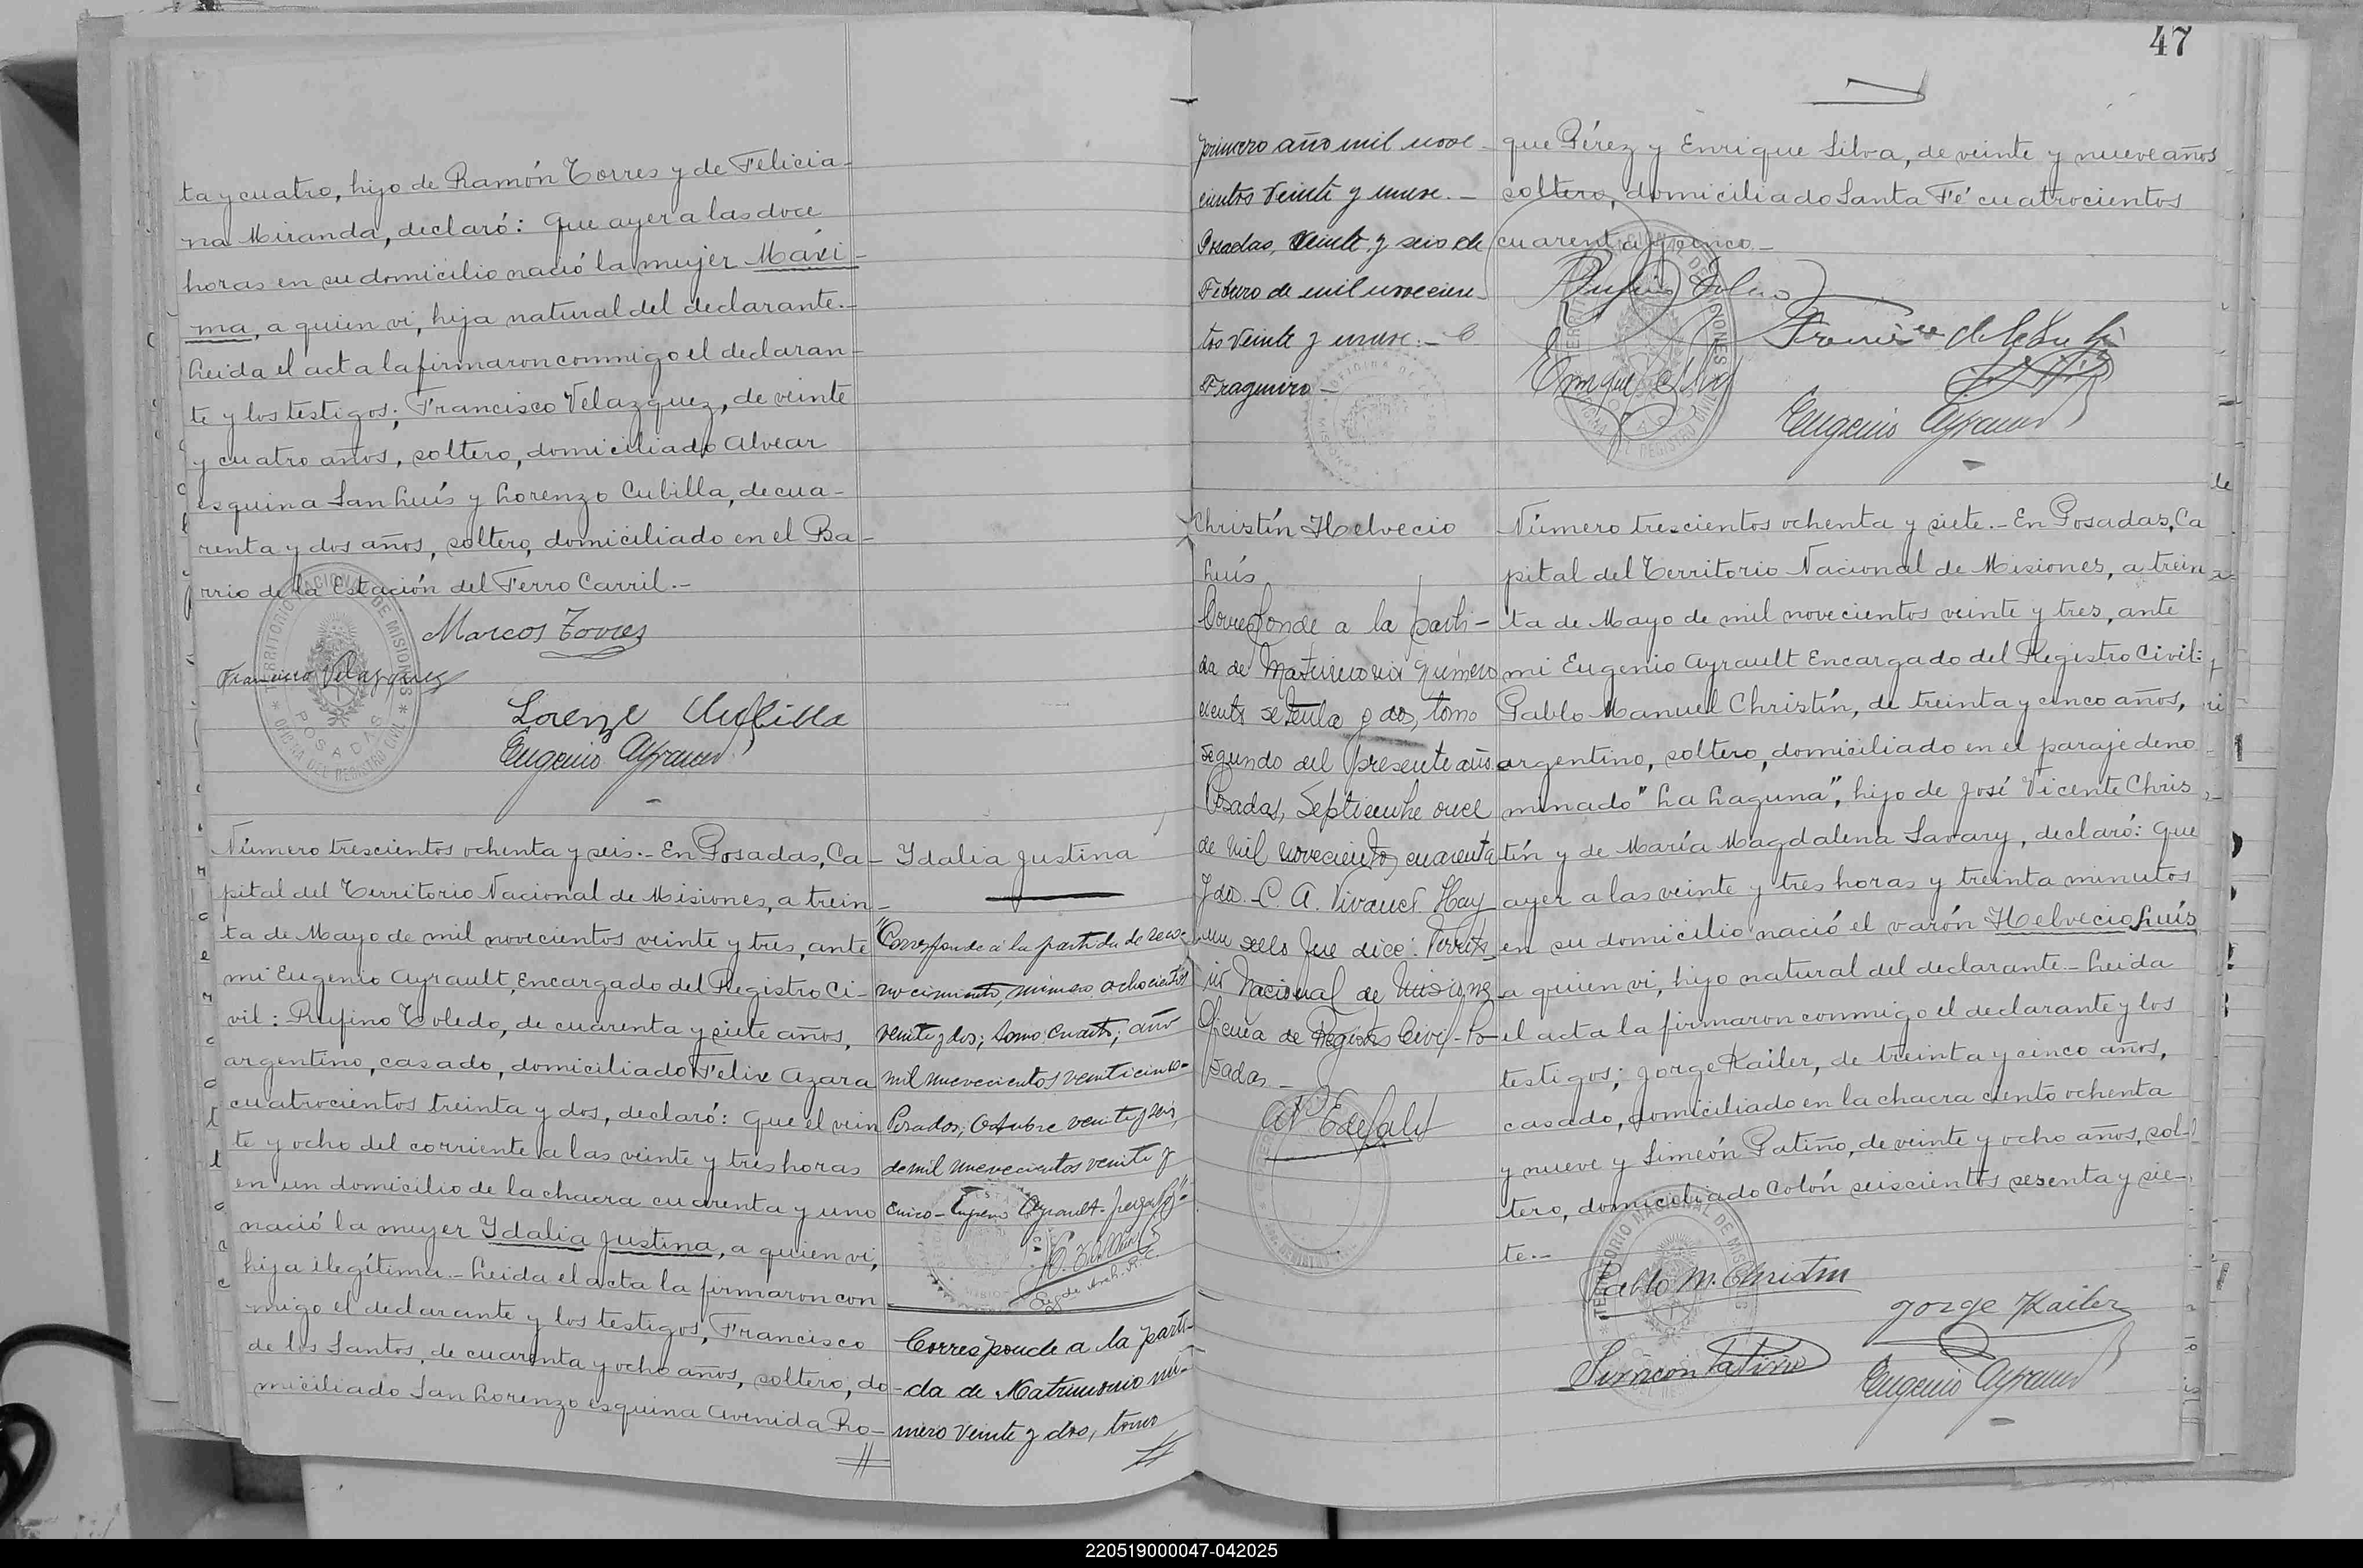 ta y cuatro, hijo de Ramón Torres y de Felicia-
na Miranda, declaró: Que ayer a las doce
horas en su domicilio nació la mujer Máxi-
ma, a quien vi, hija natural del declarante.-
Leida el acta la firmaron conmigo el declaran-
te y los testigos; Francisco Velazquez, de veinte
y cuatro años, soltero, domiciliado Alvear
esquina San Luís y Lorenzo Cubilla, de cua-
renta y dos años, soltero, domiciliado en el Ba-
rrio de la Estación del Ferro Carril.-
Marcos Torres
Francisco Velazquez
Lorenzo Cubilla
Eugenio Ayrault
TERRITORIO NACIONAL DE MISIONES
OFICINA DEL REGISTRO CIVIL
POSADAS
Número trescientos ochenta y seis.- En Posadas, Ca-
pital del Territorio Nacional de Misiones, a trein-
ta de Mayo de mil novecientos veinte y tres, ante
mi Eugenio Ayrault, Encargado del Registro Ci-
vil: Rufino Toledo, de cuarenta y siete años,
argentino, casado, domiciliado Felix Azara
cuatrocientos treinta y dos, declaró: Que el vein
te y ocho del corriente a las veinte y tres horas
en un domicilio de la chacra cuarenta y uno
nació la mujer Ydalia Justina, a quien vi,
hija ilegítima.- Leida el acta la firmaron con
migo el declarante y los testigos, Francisco
de los Santos, de cuarenta y ocho años, soltero, do-
miciliado San Lorenzo esquina Avenida Ro-
Ydalia Justina
"Corresponde á la partida de reco-
nocimiento, número ochocientos
veinte y dos; tomo cuarto; año
mil nuevecientos veinticinco-
Posadas; Octubre veinte y seis,
de mil nuevecientos veinte y
cinco- Eugenio Ayrault-
Corresponde a la parti-
da de Matrimonio nú-
mero veinte y dos, tomo
47
primero año mil nove-
cientos veinte y nueve.-
Posadas, veinte y seis de
Febrero de mil novecien-
tos veinte y nueve.-
Fragueiro-
que Pérez y Enrique Silva, de veinte y nueve años
soltero, domiciliado Santa Fé cuatrocientos
cuarenta y cinco.-
Rufino Toledo
Francisco de los Santos
Enrique Silva
Eugenio Ayrault
Christín Helvecio
Luís
Corresponde a la parti-
da de Matrimonio número
ciento setenta y dos, tomo
segundo del presente año
Posadas, Septiembre once
de mil novecientos cuarenta
Fdo.- C. A. Vivanco. Hay
un sello que dice: Territo
rio Nacional de Misiones
Oficina de Registro Civil-Po-
sadas-
Número trescientos ochenta y siete.- En Posadas, Ca
pital del Territorio Nacional de Misiones, a trein
ta de Mayo de mil novecientos veinte y tres, ante
mi Eugenio Ayrault Encargado del Registro Civil:
Pablo Manuel Christín, de treinta y cinco años,
argentino, soltero, domiciliado en el paraje deno
minado "La Laguna", hijo de José Vicente Chris
tín y de María Magdalena Savary, declaró: Que
ayer a las veinte y tres horas y treinta minutos
en su domicilio nació el varón Helvecio Luís
a quien vi, hijo natural del declarante.- Leida
el acta la firmaron conmigo el declarante y los
testigos; Jorge Kailer, de treinta y cinco años,
casado, domiciliado en la chacra ciento ochenta
y nueve y Simeón Patiño, de veinte y ocho años, sol-
tero, domiciliado Colón seiscientos sesenta y sie-
te.-
Pablo M. Christin
Jorge Kailer
Simeon Patiño
Eugenio Ayrault
220519000047-042025